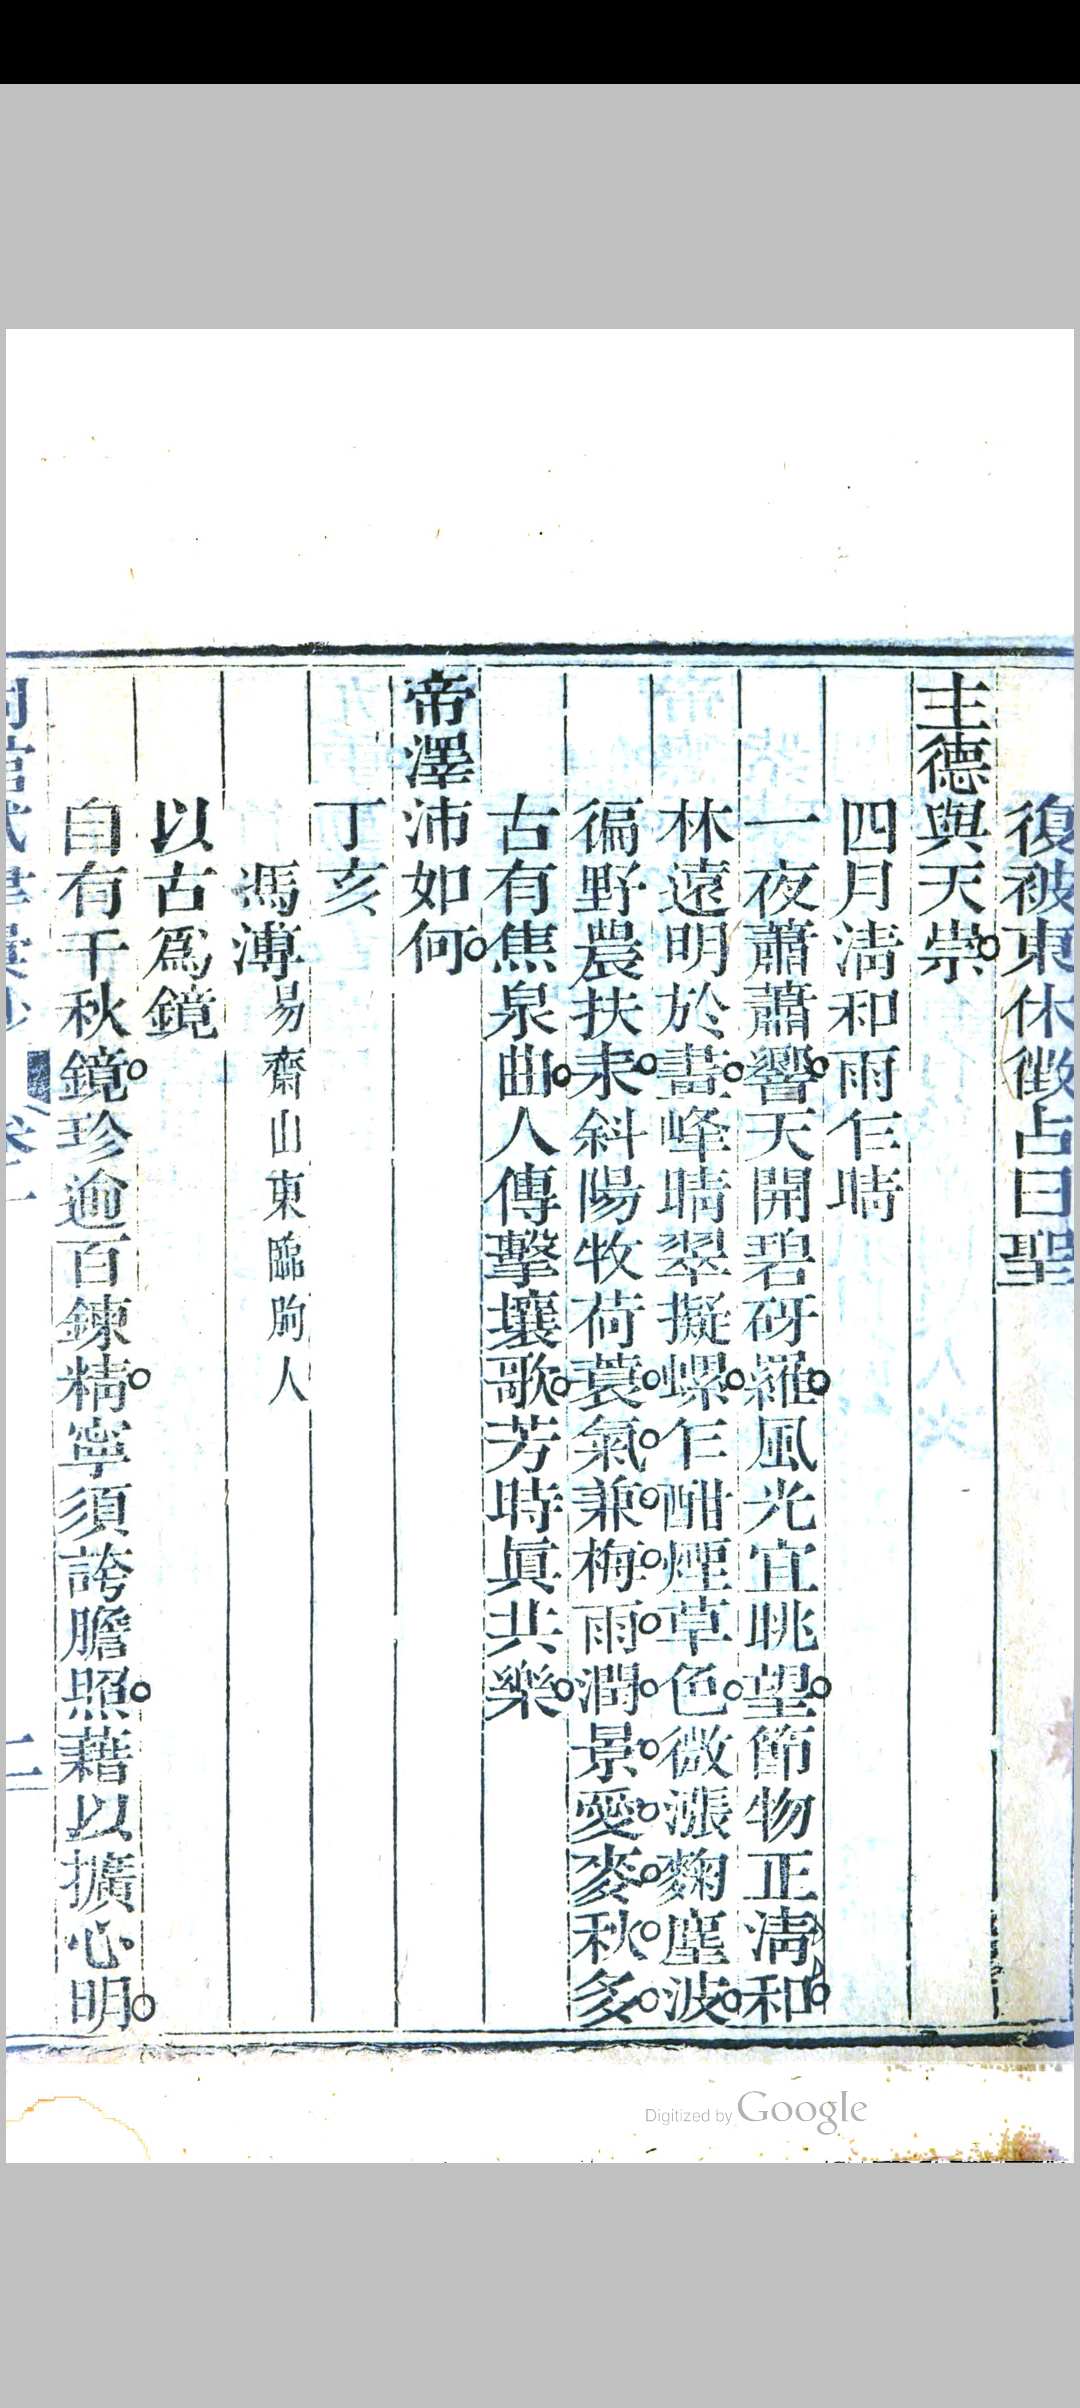 復被東休徴占曰聖
主德與天崇
四月淸和雨乍晴
一夜蕭蕭響天開碧砑羅風光宜眺望節物正淸和
林遠明於畫峰晴翠擬螺乍酣煙草色微漲麴塵波
徧野農扶耒斜陽牧荷蓑氣兼梅雨潤景愛麥秋多
古有焦泉曲人傳擊壤歌芳時眞共樂
帝澤沛如何
丁亥
馮溥易齋山東臨朐人
以古爲鏡
自有千秋鏡珍逾百鍊精寧須誇膽照藉以擴心明
二
Digitized by Google